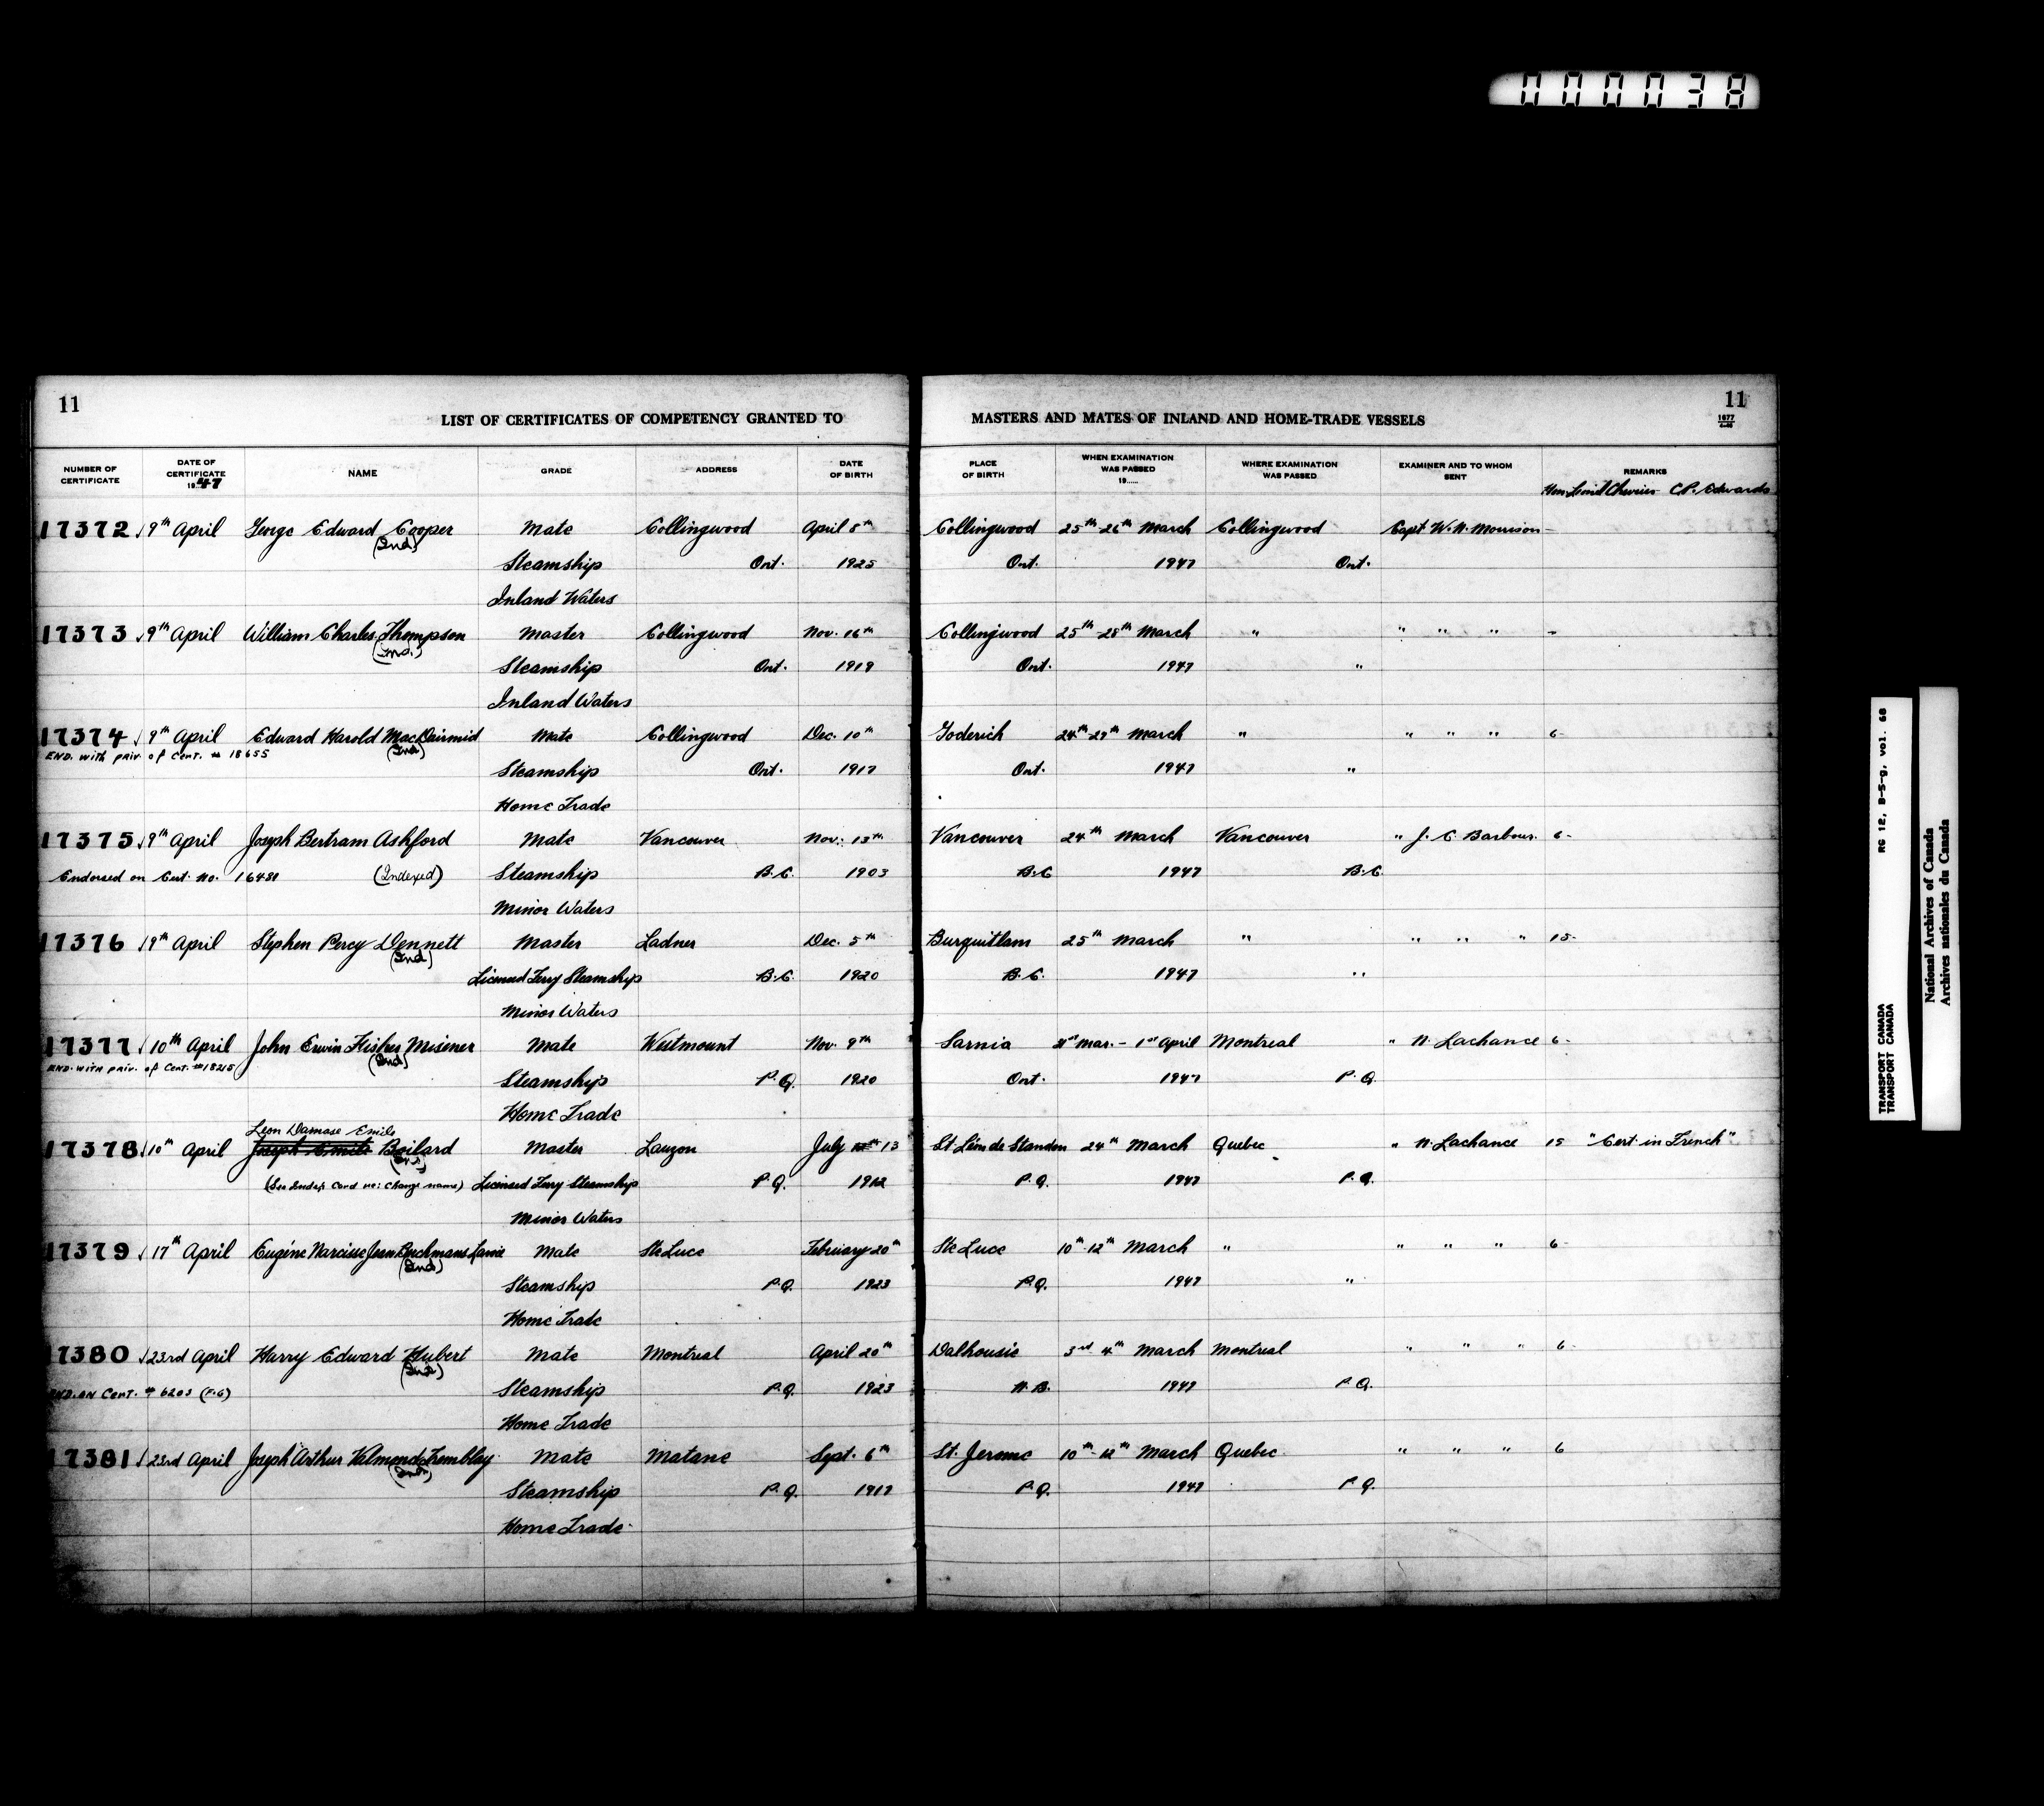 000038
11
LIST OF CERTIFICATES OF COMPETENCY GRANTED TO MASTERS AND MATES OF INLAND AND HOME-TRADE VESSELS
11
1677
NUMBER OF CERTIFICATE DATE OF CERTIFICATE 1947 NAME GRADE ADDRESS DATE OF BIRTH PLACE OF BIRTH WHEN EXAMINATION WAS PASSED 19...... WHERE EXAMINATION WAS PASSED EXAMINER AND TO WHOM SENT REMARKS
Hon. Lionel Chevrier C.P. Edwards
17372 9th April George Edward Cooper Mate Collingwood April 8th Collingwood 25th-26th March Collingwood Capt W.N. Morrison -
(Ind)
Steamship Ont. 1925 Ont. 1947 Ont.
Inland Waters
17373 9th April William Charles Thompson Master Collingwood Nov. 16th Collingwood 25th-28th March " " " " -
(Ind.)
Steamship Ont. 1919 Ont. 1947 "
Inland Waters
17374 9th April Edward Harold MacDairmid Mate Collingwood Dec. 10th Goderich 24th-29th March " " " " 6-
END. with priv. of Cert. # 18655 (Ind)
Steamship Ont. 1917 Ont. 1947 "
Home Trade
17375 9th April Joseph Bertram Ashford Mate Vancouver Nov. 13th Vancouver 24th March Vancouver " J. C. Barbour 6-
Endorsed on Cert. No. (Indexed) Steamship B.C. 1903 B.C 1947 B.C.
Minor Waters
17376 9th April Stephen Percy Dennett Master Ladner Dec. 5th Burquitlam 25th March " " " " 15-
(Ind)
Licensed Ferry Steamship B.C. 1920 B.C. 1947 "
Minor Waters
17377 10th April John Erwin Fisher Misener Mate Westmount Nov. 9th Sarnia 31st Mar. - 1st April Montreal " N. Lachance 6-
END. WITH priv. of Cert. #18215 (Ind)
Steamship P.Q. 1920 Ont. 1947 P.Q.
Home Trade
Leon Damase Emile
17378 10th April Joseph Emile Boilard Master Lauzon July 13 St Léon de Standon 24th March Quebec " N. Lachance 15 "Cert. in French"
(See Index Card re: Change name) Licensed Ferry Steamship P.Q. 1912 P.Q. 1947 P.Q.
Minor Waters
17379 17th April Eugéne Narcisse Jean Berchmans Mate Ste Luce February 20th Ste Luce 10th-12th March " " " " 6-
(Ind)
Steamship P.Q. 1923 P.Q. 1947 "
Home Trade
17380 23rd April Harry Edward Hubert Mate Montreal April 20th Dalhousie 3rd 4th March Montreal " " " 6-
(Ind)
END. ON Cert. # 6203 (F.G) Steamship P.Q. 1923 N.B. 1947 P.Q.
Home Trade
17381 23rd April Joseph Arthur Valmond Tremblay Mate Matane Sept. 6th St. Jerome 10th-12th March Quebec " " " 6
(Ind)
Steamship P.Q. 1917 P.Q. 1947 P.Q.
Home Trade
RG 12, B-5-g, vol. 68
TRANSPORT CANADA
TRANSPORT CANADA
National Archives of Canada
Archives nationales du Canada